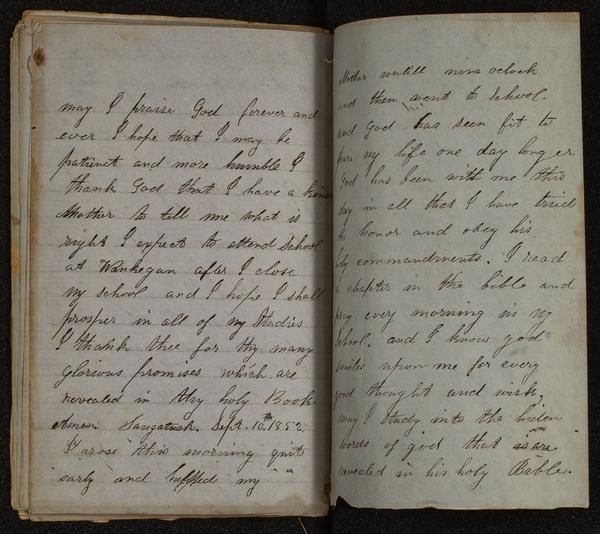 may I praise God forever and
ever I hope that I may be
patient and more humble I
thank God that I have a kind
Mother to tell me what is
right I expect to attend School
at Waukegan after I close
my school and I hope I shall
prosper in all of my Studies
I thank thee for thy many
glorious promises which are
revealed in thy holy Book.
Amen. Saugatuck. Sept. 10th 1852.
I arose this morning quite
early and helpped my
Mother untill nine oclock
and then went to School.
and God has seen fit to
spare my life one day long er
God has been with me this
day in all that I have tried
to honor and obey his
holy commandments. I read
a chapter in the bible and
pray every morning in my
School. and I know god
smiles upon me for every
good thought and wish,
may I study into the hiden
words of god that is are
revealed in his holy Bable.